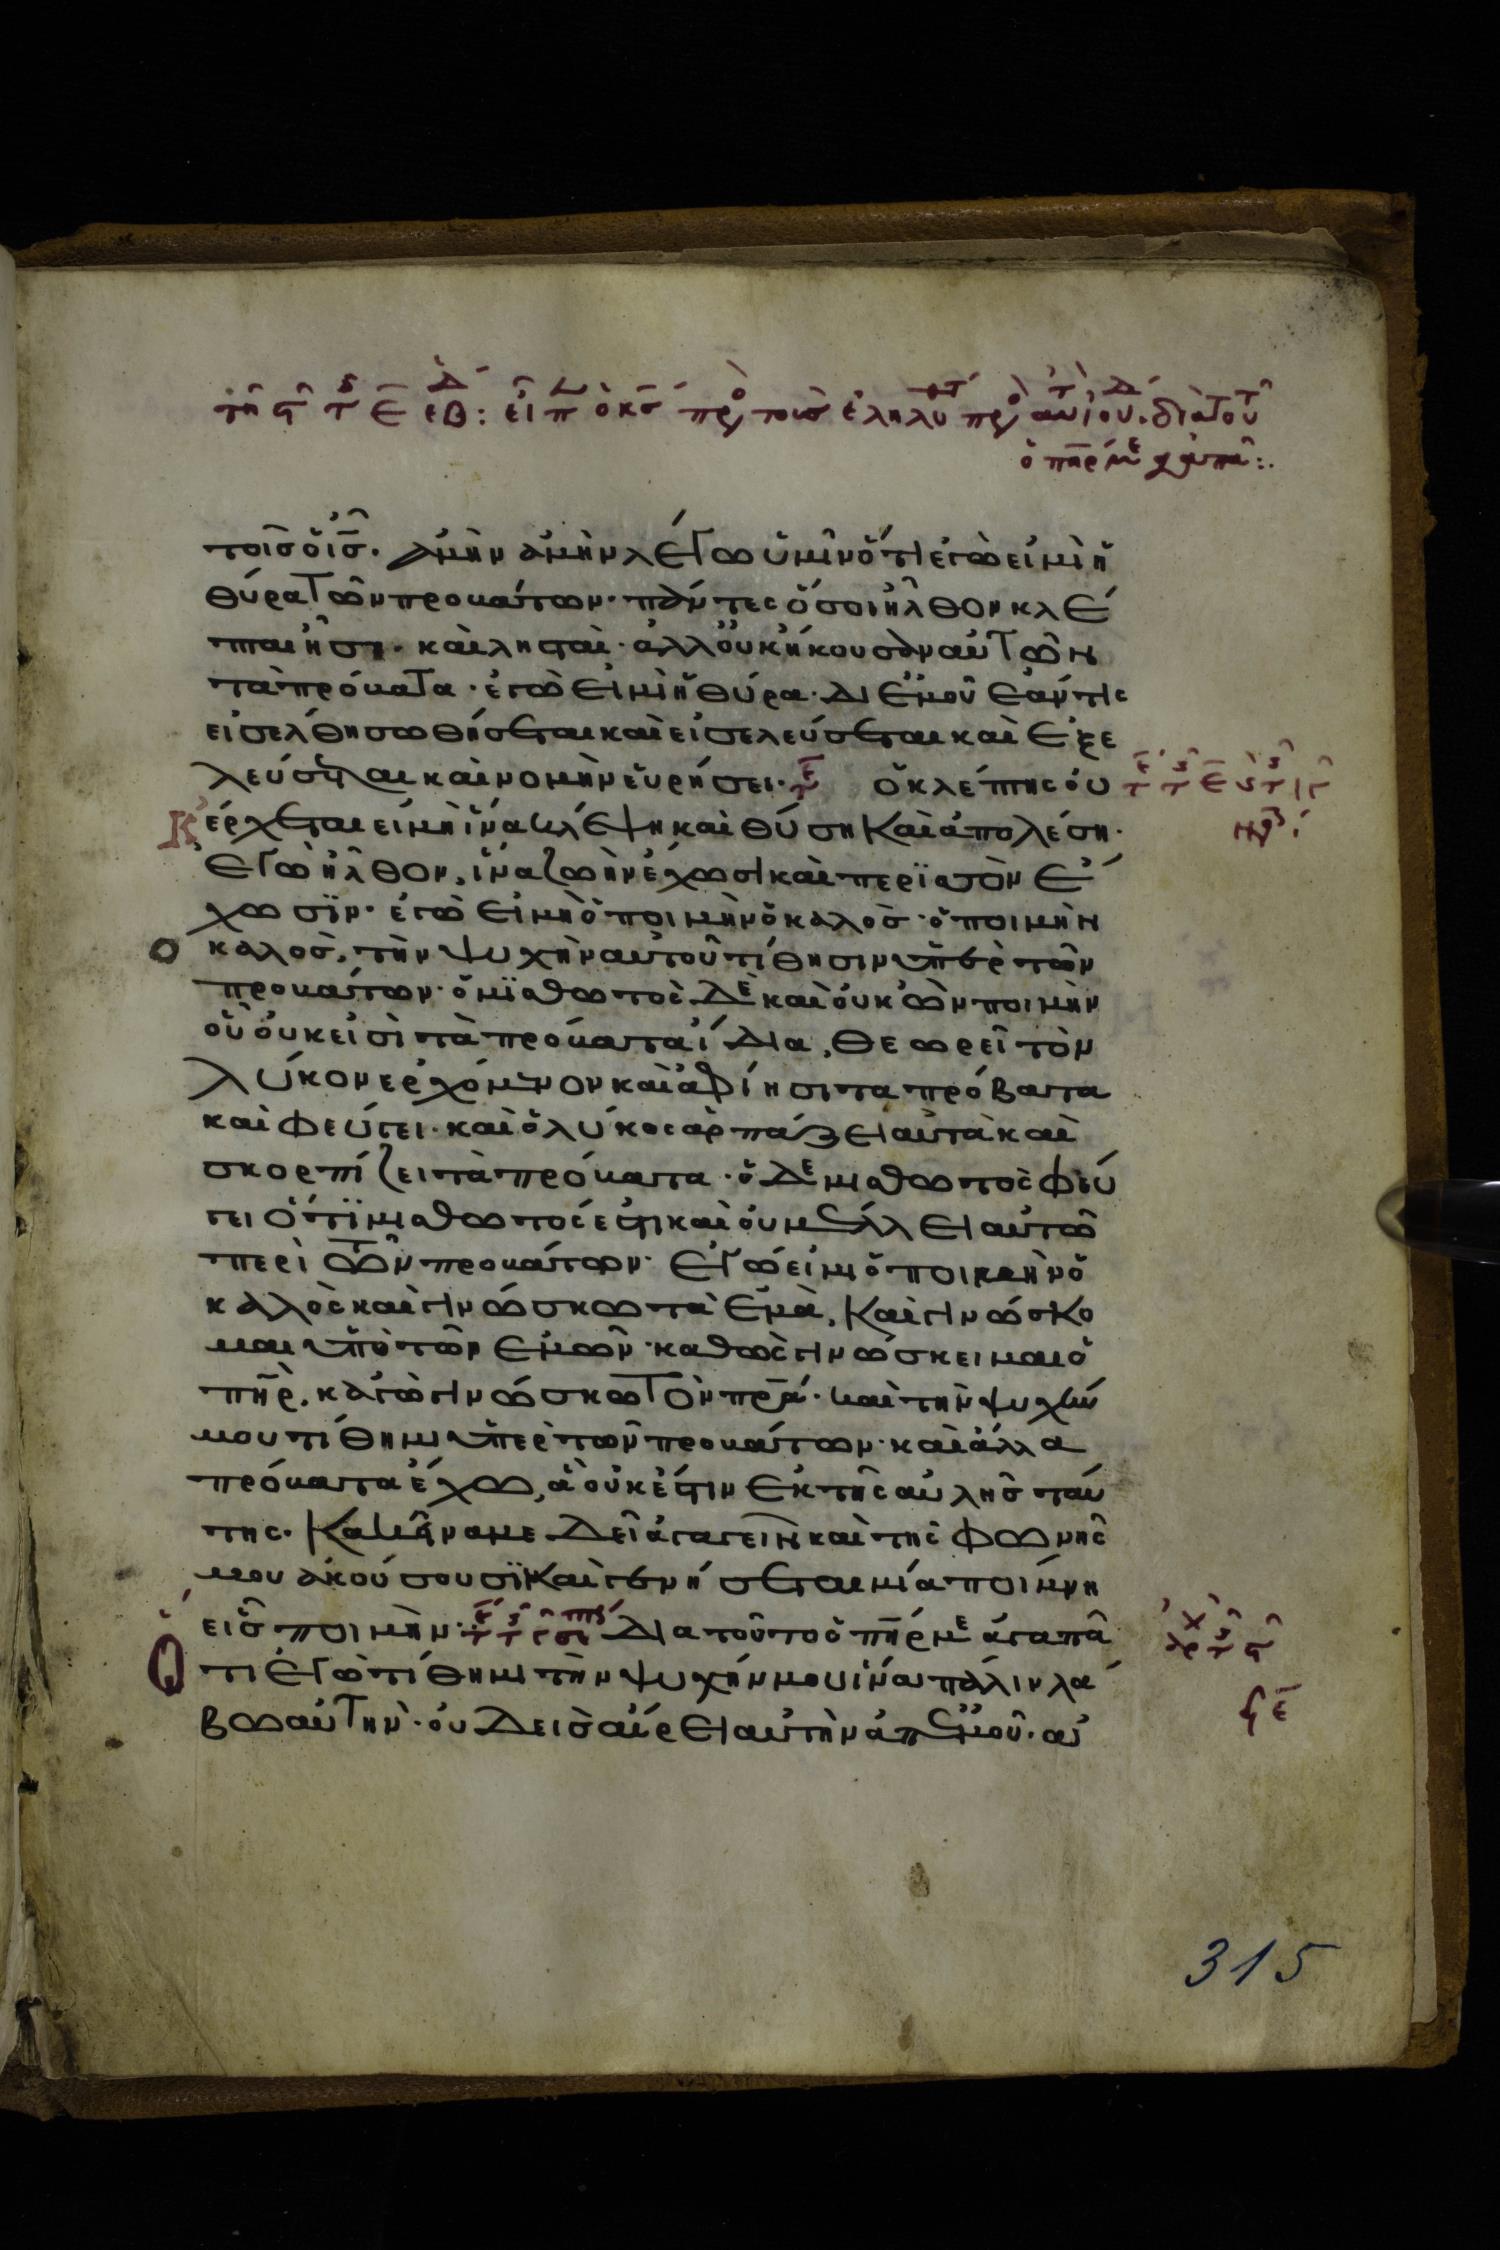 τοῖς ὁ ἰς̅. ἀμὴν ἀμὴν λέγω ὑμῖν ὅτι ἐγὼ εἰμὶ ἡ
θύρα τῶν προβάτων· πάντες ὅσοι ἦλθον κλέ
πται ἦσαν· καὶ λησταὶ· ἀλλ οὐκ ἤκουσαν αὐτῶν
τὰ πρόβατα· ἐγὼ εἰμὶ ἡ θύρα· δι ἐμοῦ ἐάν τις
εἰσέλθη σωθήσεται καὶ εἰσελεύσεται καὶ ἐξε
λεύσεται καὶ νομὴν εὑρήσει· ὁ κλέπτης οὐ
ἔρχεται εἰ μὴ ἵνα κλέψη καὶ θύση καὶ ἀπολέση·
ἐγὼ ἦλθον, ἵνα ζωὴν ἔχωσι καὶ περισσὸν ἔ
χωσϊν· ἐγὼ εἰμὴ ὁ ποιμὴν ὁ καλὸς· ὁ ποιμὴν
ὁ καλὸς, τὴν ψυχὴν αὐτοῦ τίθησιν ὑπὲρ τῶν
προβάτων· ὁ μϊσθωτὸς δὲ καὶ οὐκ ὢν ποιμὴν
οὗ οὐκ εἰσὶ τὰ πρόβατα ἴδια, θεωρεῖ τὸν
λύκον ἐρχόμενον καὶ ἀφίησι τα πρόβατα
καὶ φεύγει· καὶ ὁ λύκος ἁρπάζει αὐτὰ καὶ
σκορπίζει τὰ πρόβατα· ὁ δὲ μισθωτὸς φεύ
γει ὅτϊ μισθωτός ἐστι καὶ οὐ μέλλει αὐτῶ
περὶ τῶν προβάτων· ἐγώ εἰμι ὁ ποιμὴν ὁ
καλὸς καὶ γινώσκω τὰ ἐμὰ, καὶ γινώσκο
μαι ὑπὸ τῶν ἐμῶν· καθὼς γινώσκει μαι ὁ
πη̅ρ, κἀγὼ γινώσκω τὸν πρ̅α· καὶ τὴν ψυχήν
μου τίθημι ὑπὲρ τῶν προβάτων· καὶ ἄλλα
πρόβατα ἔχω, ἃ οὐκ ἔστιν ἐκ τῆς αὐλῆς ταύ
της· κἀκεῖνα με δεῖ ἀγαγεῖν καὶ τῆς φωνῆς
μου ἀκούσουσϊ καὶ γενήσεται μία ποίμνη
εἷς ποιμὴν· Δια τοῦτο ὁ πη̅ρ με ἀγαπᾶ
Ὅτι ἐγὼ τίθημι τὴν ψυχήν μου ἵνα πάλιν λά
βω αὐτην· οὐδεὶς αἴρει αὐτὴν ἀπ ἐμοῦ· ἀλ
315